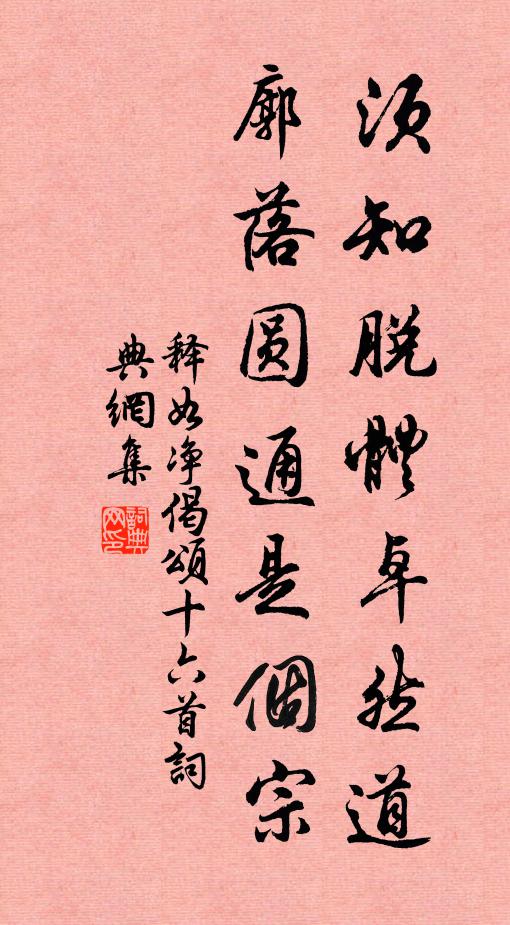 須知脫體卓然道
廓落圓通是個宗
釋如净偈頌十六首詞
典網集
詞典
网印